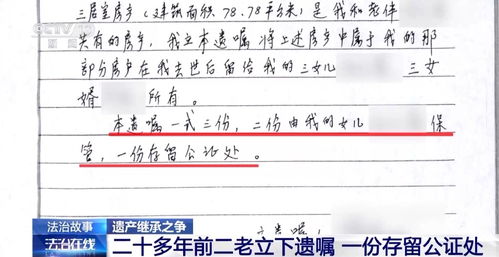 CCTV 新闻
三居室房产（建筑面积78.78平方米）是我和老伴
共有的房产，我立本遗嘱将上述房产中属于我的那
部分房产在我去世后留给我的三女儿 三女
婿 所有。
本遗嘱一式三份，二份由我的女儿 保
管，一份存留公证处。
法治故事 遗产继承之争
法治在线 二十多年前二老立下遗嘱 一份存留公证处